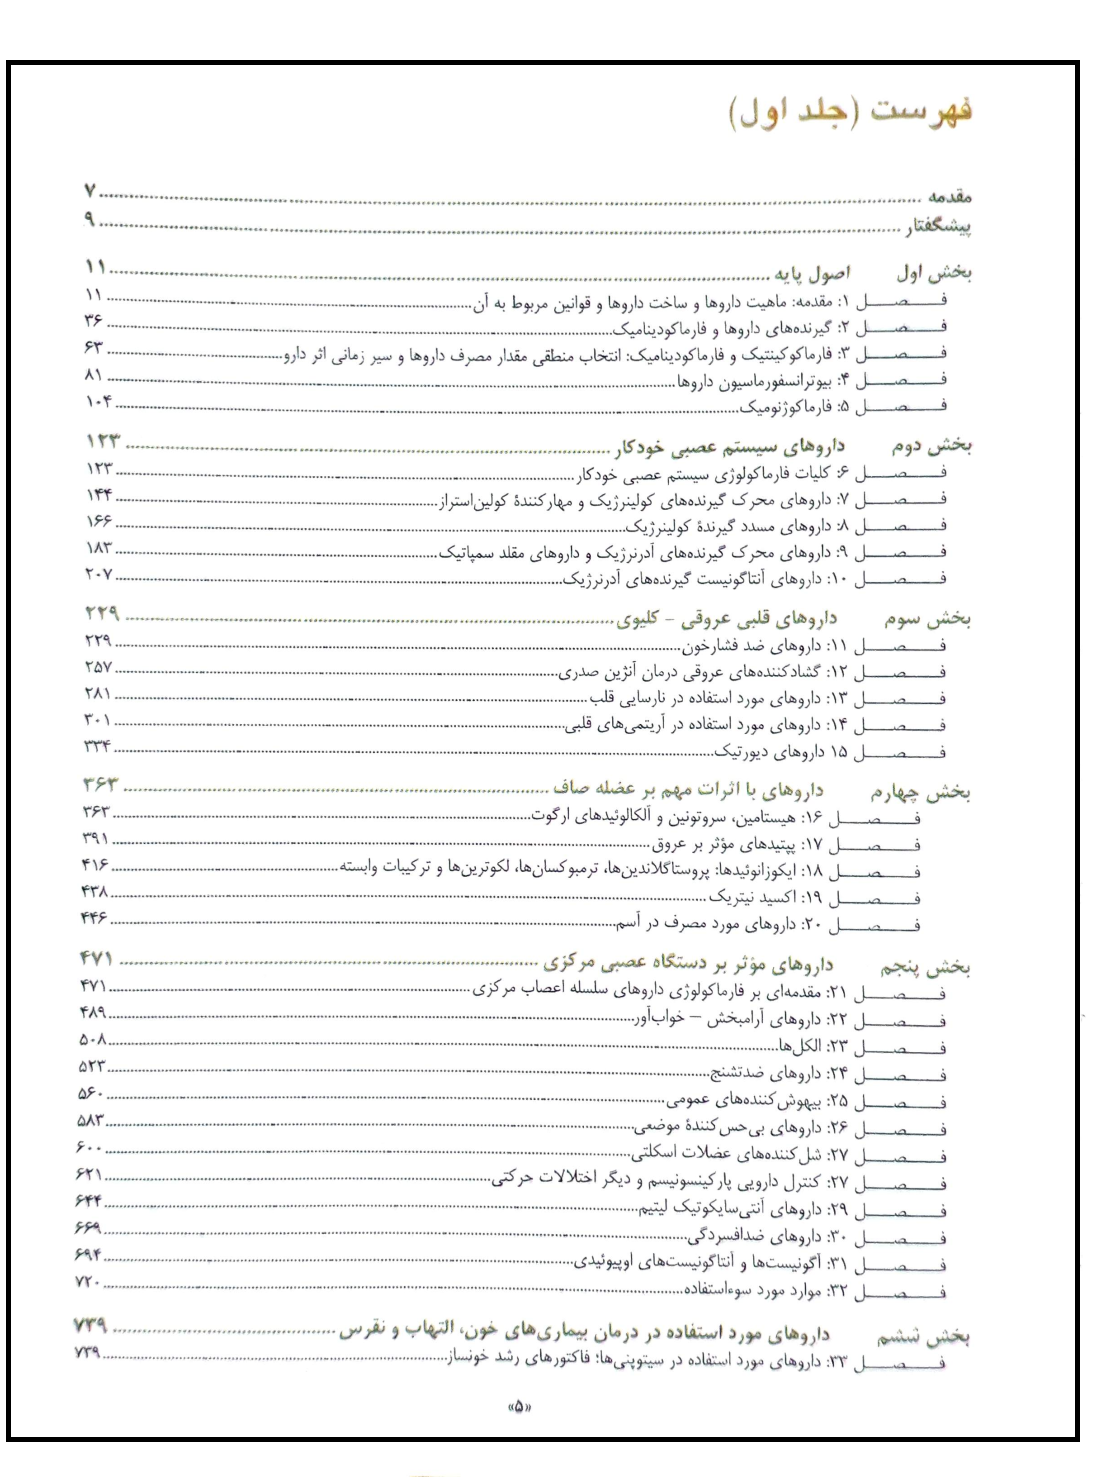 فهرست (جلد اول)
مقدمه ........ ۷
پیشگفتار ........ ۹
بخش اول اصول پایه ........ ۱۱
فـــصـــل ۱: مقدمه: ماهیت داروها و ساخت داروها و قوانین مربوط به آن ........ ۱۱
فـــصـــل ۲: گیرنده‌های داروها و فارماکودینامیک ........ ۳۶
فـــصـــل ۳: فارماکوکینتیک و فارماکودینامیک: انتخاب منطقی مقدار مصرف داروها و سیر زمانی اثر دارو ........ ۶۳
فـــصـــل ۴: بیوترانسفورماسیون داروها ........ ۸۱
فـــصـــل ۵: فارماکوژنومیک ........ ۱۰۴
بخش دوم داروهای سیستم عصبی خودکار ........ ۱۲۳
فـــصـــل ۶: کلیات فارماکولوژی سیستم عصبی خودکار ........ ۱۲۳
فـــصـــل ۷: داروهای محرک گیرنده‌های کولینرژیک و مهارکنندۀ کولین‌استراز ........ ۱۴۴
فـــصـــل ۸: داروهای مسدد گیرندۀ کولینرژیک ........ ۱۶۶
فـــصـــل ۹: داروهای محرک گیرنده‌های آدرنرژیک و داروهای مقلد سمپاتیک ........ ۱۸۳
فـــصـــل ۱۰: داروهای آنتاگونیست گیرنده‌های آدرنرژیک ........ ۲۰۷
بخش سوم داروهای قلبی عروقی - کلیوی ........ ۲۲۹
فـــصـــل ۱۱: داروهای ضد فشارخون ........ ۲۲۹
فـــصـــل ۱۲: گشادکننده‌های عروقی درمان آنژین صدری ........ ۲۵۷
فـــصـــل ۱۳: داروهای مورد استفاده در نارسایی قلب ........ ۲۸۱
فـــصـــل ۱۴: داروهای مورد استفاده در آریتمی‌های قلبی ........ ۳۰۱
فـــصـــل ۱۵ داروهای دیورتیک ........ ۳۳۴
بخش چهارم داروهای با اثرات مهم بر عضله صاف ........ ۳۶۳
فـــصـــل ۱۶: هیستامین، سروتونین و آلکالوئیدهای ارگوت ........ ۳۶۳
فـــصـــل ۱۷: پپتیدهای مؤثر بر عروق ........ ۳۹۱
فـــصـــل ۱۸: ایکوزانوئیدها: پروستاگلاندین‌ها، ترمبوکسان‌ها، لکوترین‌ها و ترکیبات وابسته ........ ۴۱۶
فـــصـــل ۱۹: اکسید نیتریک ........ ۴۳۸
فـــصـــل ۲۰: داروهای مورد مصرف در آسم ........ ۴۴۶
بخش پنجم داروهای مؤثر بر دستگاه عصبی مرکزی ........ ۴۷۱
فـــصـــل ۲۱: مقدمه‌ای بر فارماکولوژی داروهای سلسله اعصاب مرکزی ........ ۴۷۱
فـــصـــل ۲۲: داروهای آرامبخش – خواب‌آور ........ ۴۸۹
فـــصـــل ۲۳: الکل‌ها ........ ۵۰۸
فـــصـــل ۲۴: داروهای ضدتشنج ........ ۵۲۳
فـــصـــل ۲۵: بیهوش‌کننده‌های عمومی ........ ۵۶۰
فـــصـــل ۲۶: داروهای بی‌حس‌کنندۀ موضعی ........ ۵۸۳
فـــصـــل ۲۷: شل‌کننده‌های عضلات اسکلتی ........ ۶۰۰
فـــصـــل ۲۷: کنترل دارویی پارکینسونیسم و دیگر اختلالات حرکتی ........ ۶۲۱
فـــصـــل ۲۹: داروهای آنتی‌سایکوتیک لیتیم ........ ۶۴۴
فـــصـــل ۳۰: داروهای ضدافسردگی ........ ۶۶۹
فـــصـــل ۳۱: آگونیست‌ها و آنتاگونیست‌های اوپیوئیدی ........ ۶۹۴
فـــصـــل ۳۲: موارد مورد سوءاستفاده ........ ۷۲۰
بخش ششم داروهای مورد استفاده در درمان بیماری‌های خون، التهاب و نقرس ........ ۷۳۹
فـــصـــل ۳۳: داروهای مورد استفاده در سیتوپنی‌ها؛ فاکتورهای رشد خونساز ........ ۷۳۹
«۵»